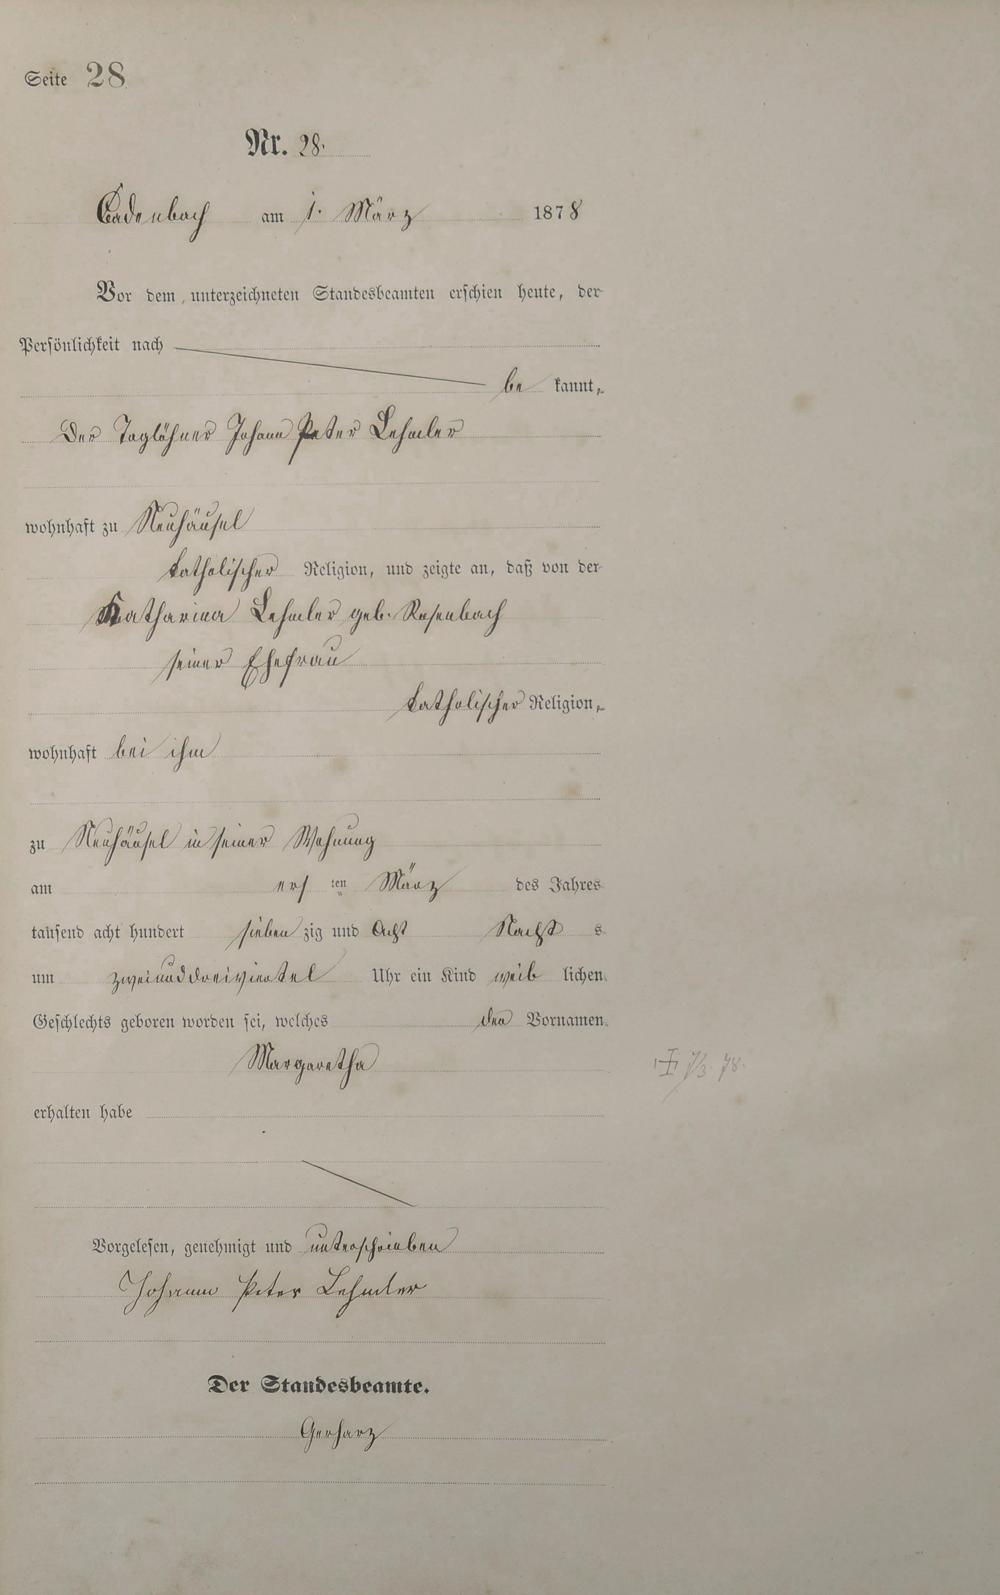 Seite 28
Nr. 28.
Cadenbach am 1. März 1878
Vor dem unterzeichneten Standesbeamten erschien heute, der
Persönlichkeit nach
be kannt,
Der Taglöhner Johann Peter Lehmler
wohnhaft zu Neuhäusel
katholischer Religion, und zeigte an, daß von der
Katharina Lehmler geb. Rosenbach
seiner Ehefrau
katholischer Religion,
wohnhaft bei ihm
zu Neuhäusel in seiner Wohnung
am ersten März des Jahres
tausend acht hundert sieben zig und Acht Nacht s
um zweiunddreiviertel Uhr ein Kind weib lichen
Geschlechts geboren worden sei, welches den Vornamen
Margaretha
† 7/3 78.
erhalten habe
Vorgelesen, genehmigt und unterschrieben
Johann Peter Lehmler
Der Standesbeamte.
Gerharz